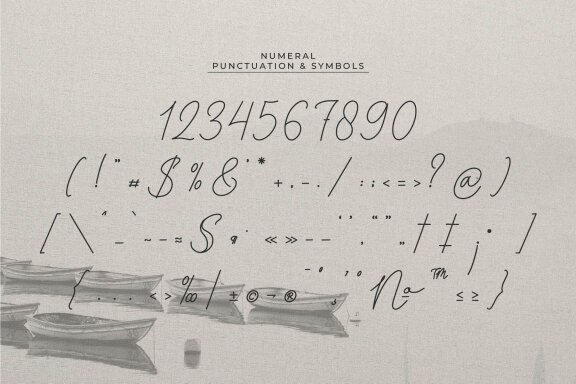 NUMERAL
PUNCTUATION & SYMBOLS
1234567890
( ! " # $ % & ' * + , - . / : ; < = > ? @ )
[ \ ^ _ ` ~ – ≈ S ª · « » – — ‘ ’ ‚ “ ” „ † ‡ ¡ • ]
{ . . . < > ‰ | ± © ¬ ® ¯ ° ¸ ¹ º Nº ™ ≤ ≥ }